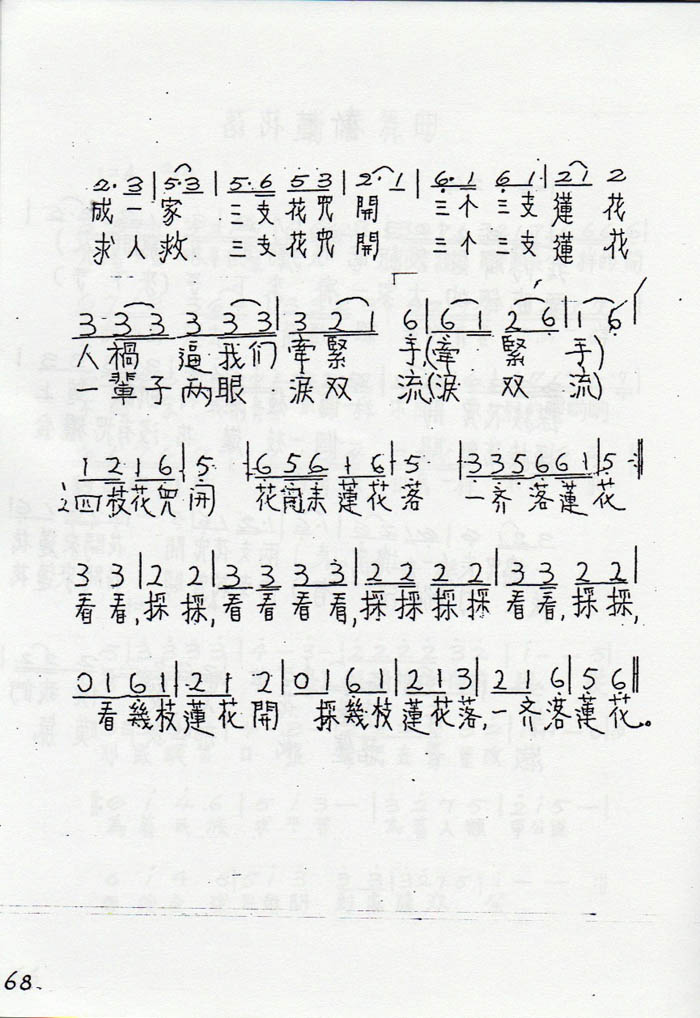 2· 3 | 5·3 | 5·6 5 3 | 2· 1 | 6· 1 6 1 | 2 1 2
成一家 三支花兕開 三个三支蓮花
求人救 三支花兕開 三个三支蓮花
3 3 3 3 3 3 | 3 2 1 6 | 6 1 2 6 | 1 6 |
人禍逼我们牽緊手,(牽緊手)
一輩子两眼淚双流(淚双流)
1 2 1 6 | 5 6 5 6 1 6 | 5 3 3 5 6 6 1 | 5 :||
四枝花兕開 花蓮花落 一齐落蓮花
3 3 | 2 2 | 3 3 3 3 | 2 2 2 2 | 3 3 2 2 |
看看,採採,看看看看,採採採採看看,採採,
0 1 6 1 | 2 1 2 | 0 1 6 1 | 2 1 3 | 2 1 6 | 5 6 ||
看幾枝蓮花開 採幾枝蓮花落,一齐落蓮花。
68